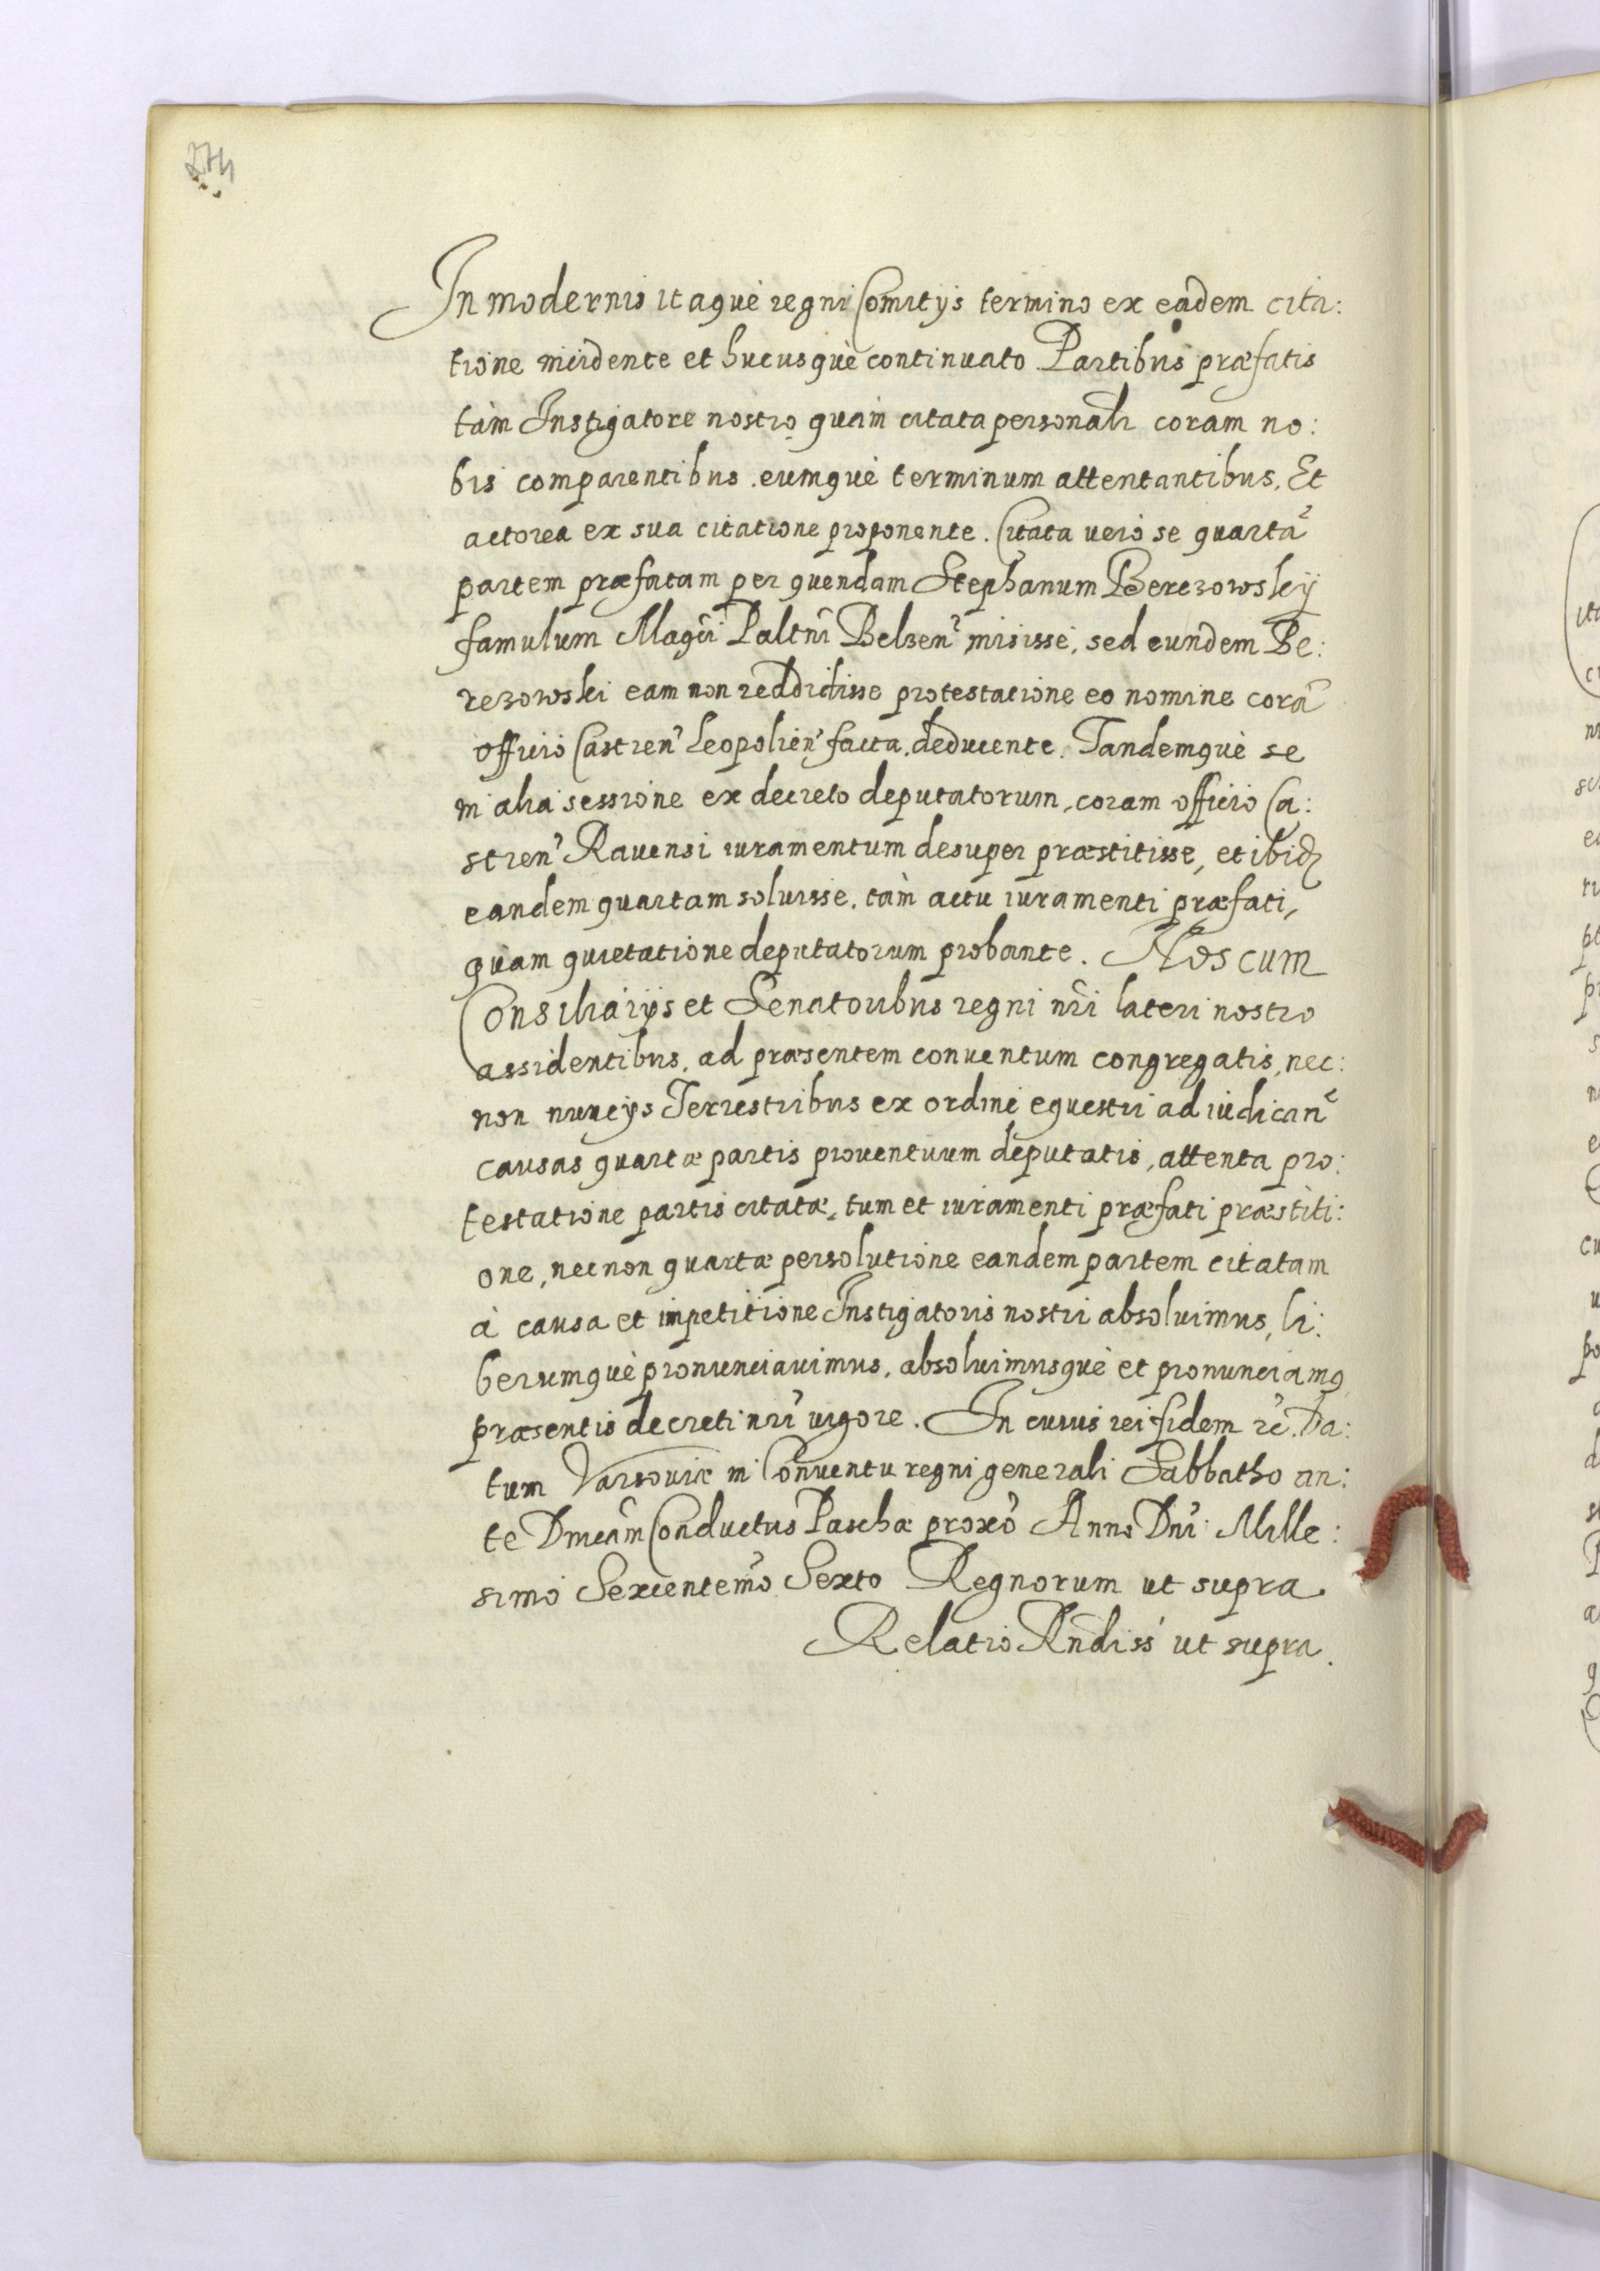 274
In modernis itaquè regni Comitijs termino ex eadem cita:
tione incidente et hucusquè continuato Partibus præfatis
tàm Instigatore nostro quàm citata personali coram no:
bis comparentibus eumquè terminum attentantibus, Et
actorea ex sua citatione proponente. Citata verò se quartã
partem præfatam per quendam Stephanum Berezowskÿ
famulum Magci Paltni Belzen misisse, sed eundem Be:
rezowski eam non reddidisse protestatione eo nomine corã
officio Castren Leopolien facta, deducente. Tandemquè se
in alia sessione ex decreto deputatorum, coram officio Ca:
stren Ravensi iuramentum desuper præstitisse, et ibid
eandem quartam soluisse, tàm actu iuramenti præfati,
quàm quietatione deputatorum probante. Nos cum
Consiliarijs et Senatoribus regni nri lateri nostro
assidentibus, ad præsentem conventum congregatis, nec:
non nuncijs Terrestribus ex ordine equestri ad iudican
causas quartæ partis proventuum deputatis, attenta pro:
testatione partis citatæ, tum et iuramenti præfati præstiti:
one, necnon quartæ persolutione eandem partem citatam
à causa et impetitione Instigatoris nostri absoluimus, li:
berumquè pronunciauimus, absoluimusquè et pronunciamq
præsentis decreti nri vigore. In cuius rei fidem rc. Da:
tum Varsoviæ in Conventu regni generali Sabbatho an:
te Dmcam Conductus Paschæ proxo Anno Dni Mille:
simo Sexcentemo Sexto Regnorum ut supra
Relatio Rndiss ut supra.